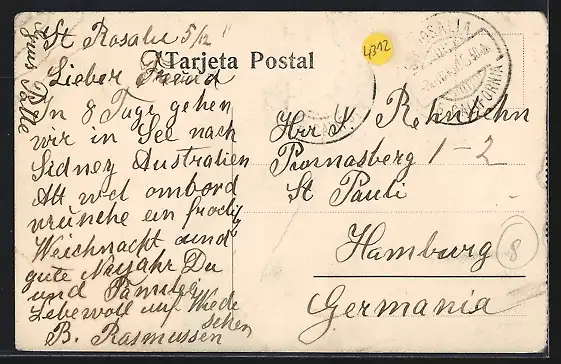 St Rosalie 5/12
Tarjeta Postal
4312
Lieber Freund
In 8 Tage gehen
wir in See nach
Sidney Australien
Alt wel ombord
wünche ein frodig
Weichnacht und
gute Neujahr Du
und Familie
Lebewoll auf Wiede
sehen
B. Rasmussen
Grus
Herr
Rehnbehn
Pinnasberg 1-2
St Pauli
Hamburg
Germania
8
ROSALIA
CALIFORNIA